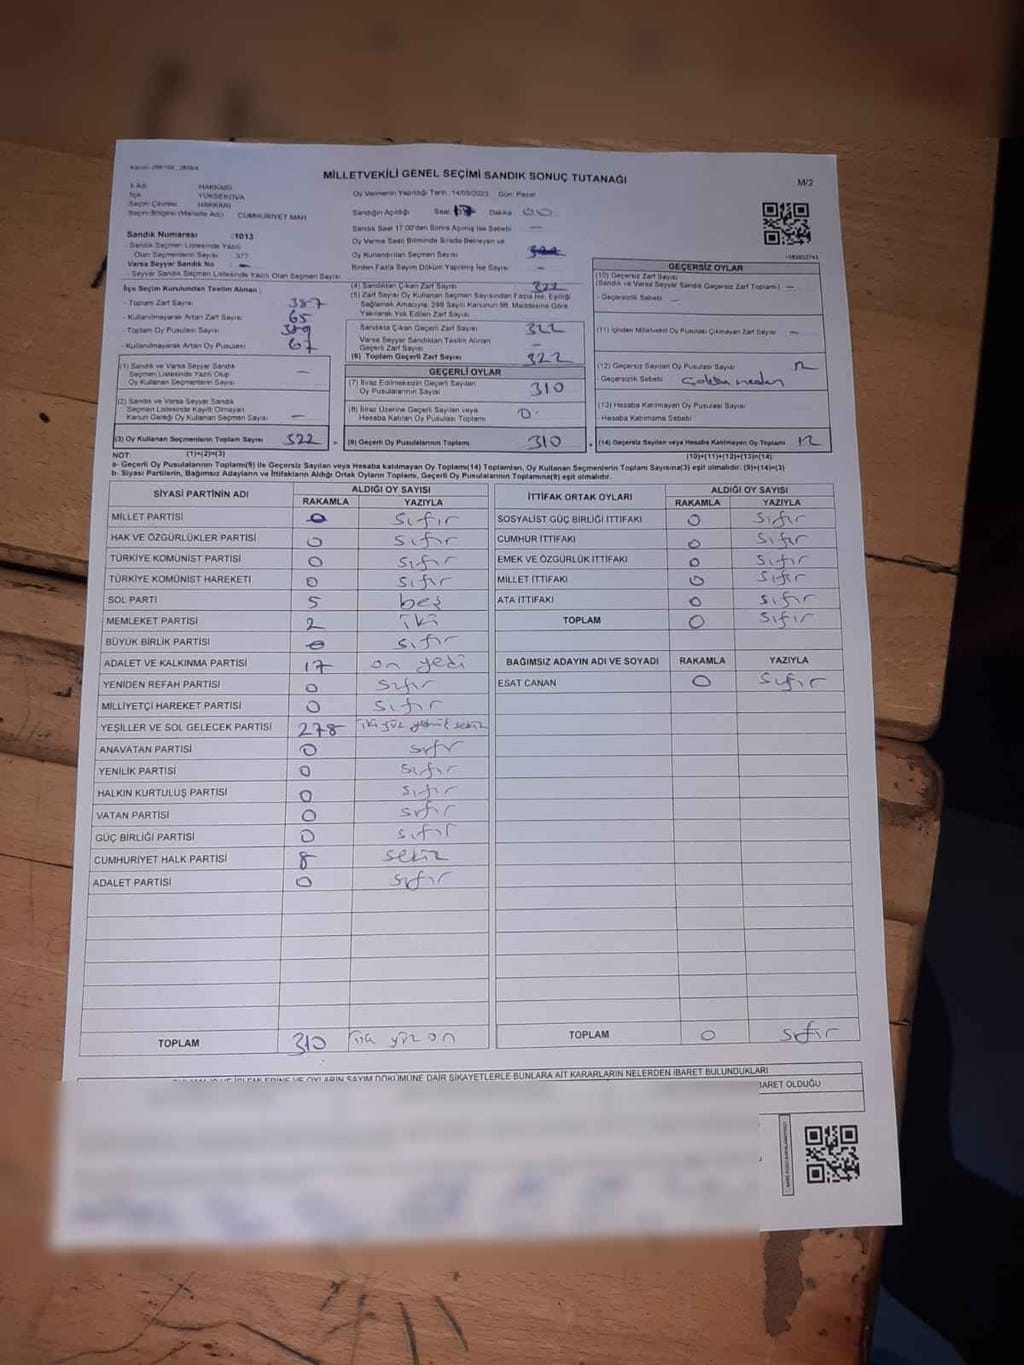 MİLLETVEKİLİ GENEL SEÇİMİ SANDIK SONUÇ TUTANAĞI
M/2
HAKKARİ
İlçe YÜKSEKOVA
Seçim Çevresi HAKKARİ
Seçim Bölgesi (Mahalle Adı) CUMHURİYET MAH
Sandık Numarası :1013
- Sandık Seçmen Listesinde Yazılı
Olan Seçmenlerin Sayısı : 377
Varsa Seyyar Sandık No : —
- Seyyar Sandık Seçmen Listesinde Yazılı Olan Seçmen Sayısı
İlçe Seçim Kurulundan Teslim Alınan :
- Toplam Zarf Sayısı 387
- Kullanılmayarak Artan Zarf Sayısı 65
- Toplam Oy Pusulası Sayısı 389
- Kullanılmayarak Artan Oy Pusulası 67
(1) Sandık ve Varsa Seyyar Sandık
Seçmen Listesinde Yazılı Olup
Oy Kullanan Seçmenlerin Sayısı —
(2) Sandık ve Varsa Seyyar Sandık
Seçmen Listesinde Kayıtlı Olmayan
Kanun Gereği Oy Kullanan Seçmen Sayısı —
(3) Oy Kullanan Seçmenlerin Toplam Sayısı 322
Oy Vermenin Yapıldığı Tarih : 14/05/2023 Gün: Pazar
Sandığın Açıldığı Saat 17 Dakika 00
Sandık Saat 17.00'den Sonra Açılmış İse Sebebi —
Oy Verme Saati Bitiminde Sırada Bekleyen ve
Oy Kullandırılan Seçmen Sayısı
Birden Fazla Sayım Döküm Yapılmış İse Sayısı —
(4) Sandıktan Çıkan Zarf Sayısı 322
(5) Zarf Sayısı Oy Kullanan Seçmen Sayısından Fazla İse, Eşitliği
Sağlamak Amacıyla, 298 Sayılı Kanunun 98. Maddesine Göre
Yakılarak Yok Edilen Zarf Sayısı
Sandıkta Çıkan Geçerli Zarf Sayısı 322
Varsa Seyyar Sandıktan Teslim Alınan
Geçerli Zarf Sayısı —
(6) Toplam Geçerli Zarf Sayısı 322
GEÇERLİ OYLAR
(7) İtiraz Edilmeksizin Geçerli Sayılan
Oy Pusulalarının Sayısı 310
(8) İtiraz Üzerine Geçerli Sayılan veya
Hesaba Katılan Oy Pusulası Toplamı 0
(9) Geçerli Oy Pusulalarının Toplamı 310
GEÇERSİZ OYLAR
(10) Geçersiz Zarf Sayısı
(Sandık ve Varsa Seyyar Sandık Geçersiz Zarf Toplamı) —
- Geçersizlik Sebebi —
(11) İçinden Milletvekili Oy Pusulası Çıkmayan Zarf Sayısı —
(12) Geçersiz Sayılan Oy Pusulası Sayısı 12
- Geçersizlik Sebebi
(13) Hesaba Katılmayan Oy Pusulası Sayısı
- Hesaba Katılmama Sebebi
(14) Geçersiz Sayılan veya Hesaba Katılmayan Oy Toplamı 12
NOT: (1)+(2)=(3) (10)+(11)+(12)+(13)=(14)
a- Geçerli Oy Pusulaları Toplamı(9) ile Geçersiz Sayılan veya Hesaba katılmayan Oy Toplamı(14) Toplamları, Oy Kullanan Seçmenlerin Toplam Sayısına(3) eşit olmalıdır. (9)+(14)=(3)
b- Siyasi Partilerin, Bağımsız Adayların ve İttifakların Aldığı Ortak Oyların Toplamı, Geçerli Oy Pusulalarının Toplamına(9) eşit olmalıdır.
SİYASİ PARTİNİN ADI ALDIĞI OY SAYISI
RAKAMLA YAZIYLA
MİLLET PARTİSİ 0 sıfır
HAK VE ÖZGÜRLÜKLER PARTİSİ 0 sıfır
TÜRKİYE KOMÜNİST PARTİSİ 0 sıfır
TÜRKİYE KOMÜNİST HAREKETİ 0 sıfır
SOL PARTİ 5 beş
MEMLEKET PARTİSİ 2 iki
BÜYÜK BİRLİK PARTİSİ 0 sıfır
ADALET VE KALKINMA PARTİSİ 17 on yedi
YENİDEN REFAH PARTİSİ 0 sıfır
MİLLİYETÇİ HAREKET PARTİSİ 0 sıfır
YEŞİLLER VE SOL GELECEK PARTİSİ 278 iki yüz yetmiş sekiz
ANAVATAN PARTİSİ 0 sıfır
YENİLİK PARTİSİ 0 sıfır
HALKIN KURTULUŞ PARTİSİ 0 sıfır
VATAN PARTİSİ 0 sıfır
GÜÇ BİRLİĞİ PARTİSİ 0 sıfır
CUMHURİYET HALK PARTİSİ 8 sekiz
ADALET PARTİSİ 0 sıfır
TOPLAM 310 yüz on
İTTİFAK ORTAK OYLARI ALDIĞI OY SAYISI
RAKAMLA YAZIYLA
SOSYALİST GÜÇ BİRLİĞİ İTTİFAKI 0 sıfır
CUMHUR İTTİFAKI 0 sıfır
EMEK VE ÖZGÜRLÜK İTTİFAKI 0 sıfır
MİLLET İTTİFAKI 0 sıfır
ATA İTTİFAKI 0 sıfır
TOPLAM 0 sıfır
BAĞIMSIZ ADAYIN ADI VE SOYADI RAKAMLA YAZIYLA
ESAT CANAN 0 sıfır
TOPLAM 0 sıfır
OYLARIN SAYIM DÖKÜMÜNE DAİR ŞİKAYETLERLE BUNLARA AİT KARARLARIN NELERDEN İBARET BULUNDUKLARI
BARET OLDUĞU